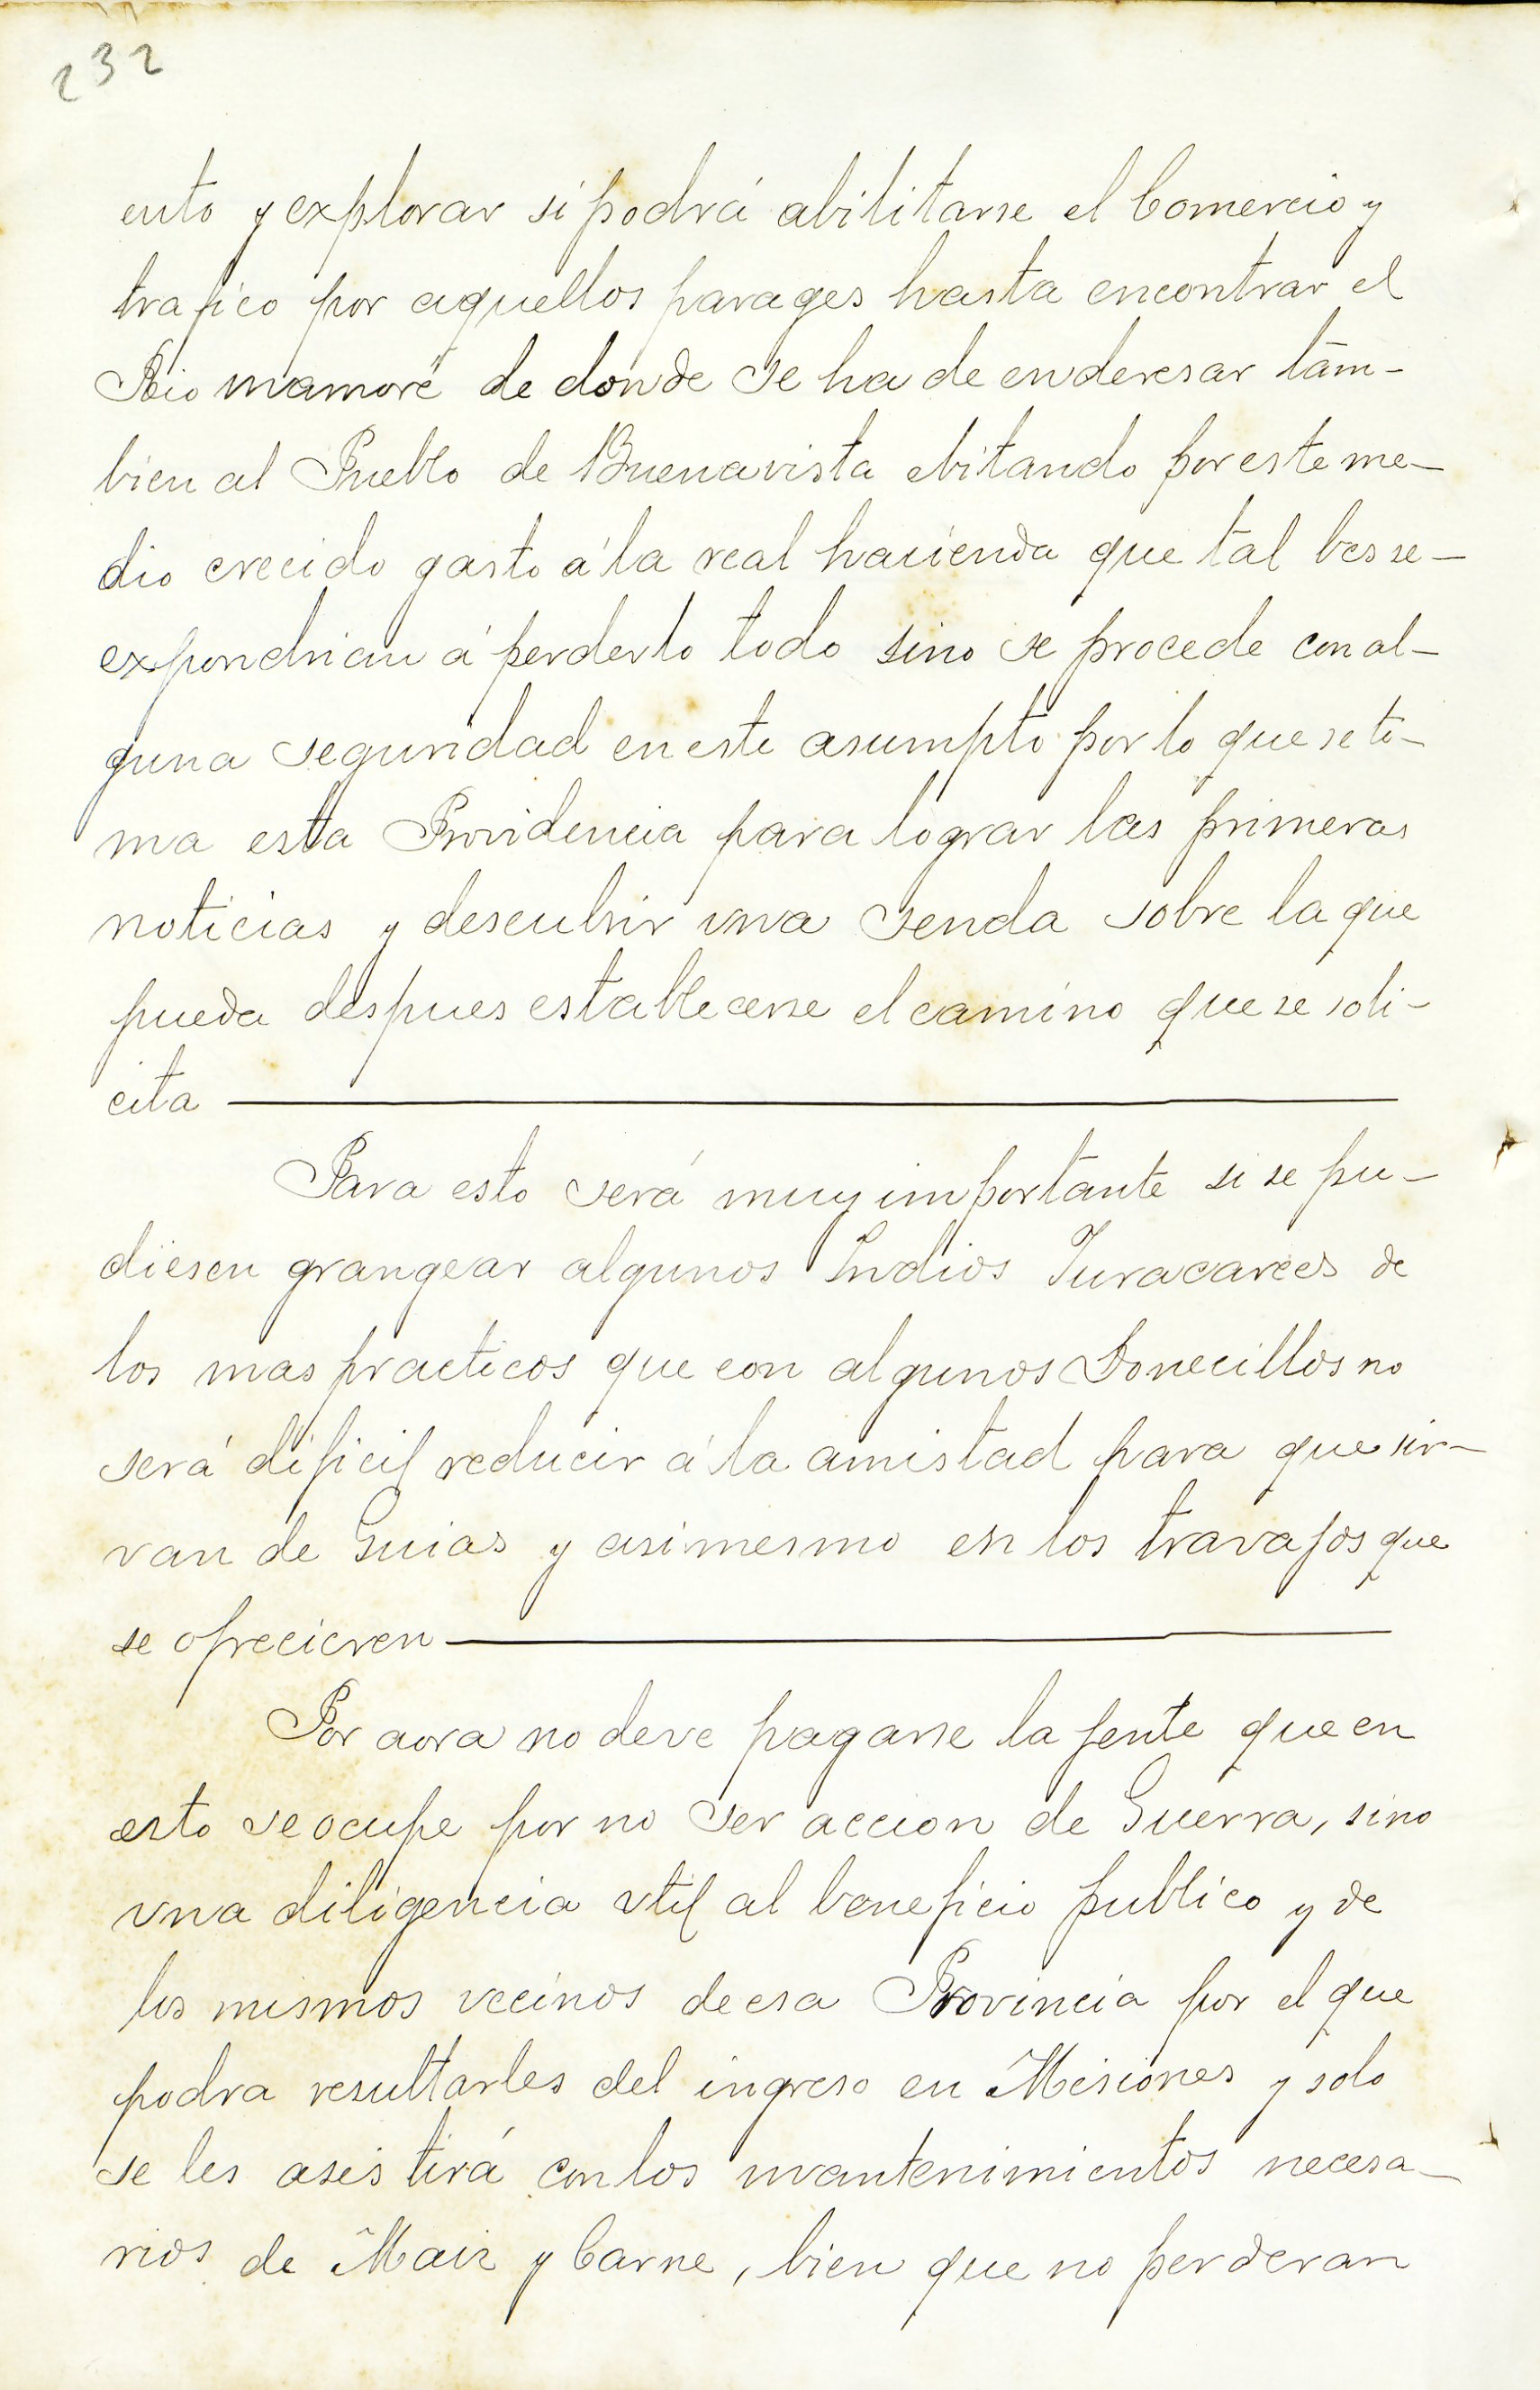 232
ento y explorar si podrá abilitarse el Comercio y
trafico por aquellos parages hasta encontrar el
Rio mamoré de donde se ha de enderesar tam-
bien al Pueblo de Buenavista ebitando por este me-
dio crecido gasto á la real hacienda que tal bes se-
expondrian á perderlo todo sino se procede con al-
guna seguridad en este asumpto por lo que se to-
ma esta Providencia para lograr las primeras
noticias y descubrir vna senda sobre la que
pueda despues establecerse el camino que se soli-
cita
Para esto será muy importante si se pu-
diesen grangear algunos Indios Yuracarees de
los mas practicos que con algunos Donecillos no
será dificil reducir á la amistad para que sir-
van de Guias y asimesmo en los travajos que
se ofrecieren
Por aora no deve pagarse la jente que en
esto se ocupe por no ser accion de Guerra, sino
vna diligencia vtil al beneficio publico y de
los mismos vecinos de esa Provincia por el que
podra resultarles del ingreso en Misiones y solo
se les asistirá con los mantenimientos necesa-
rios de Maiz y Carne, bien que no perderan